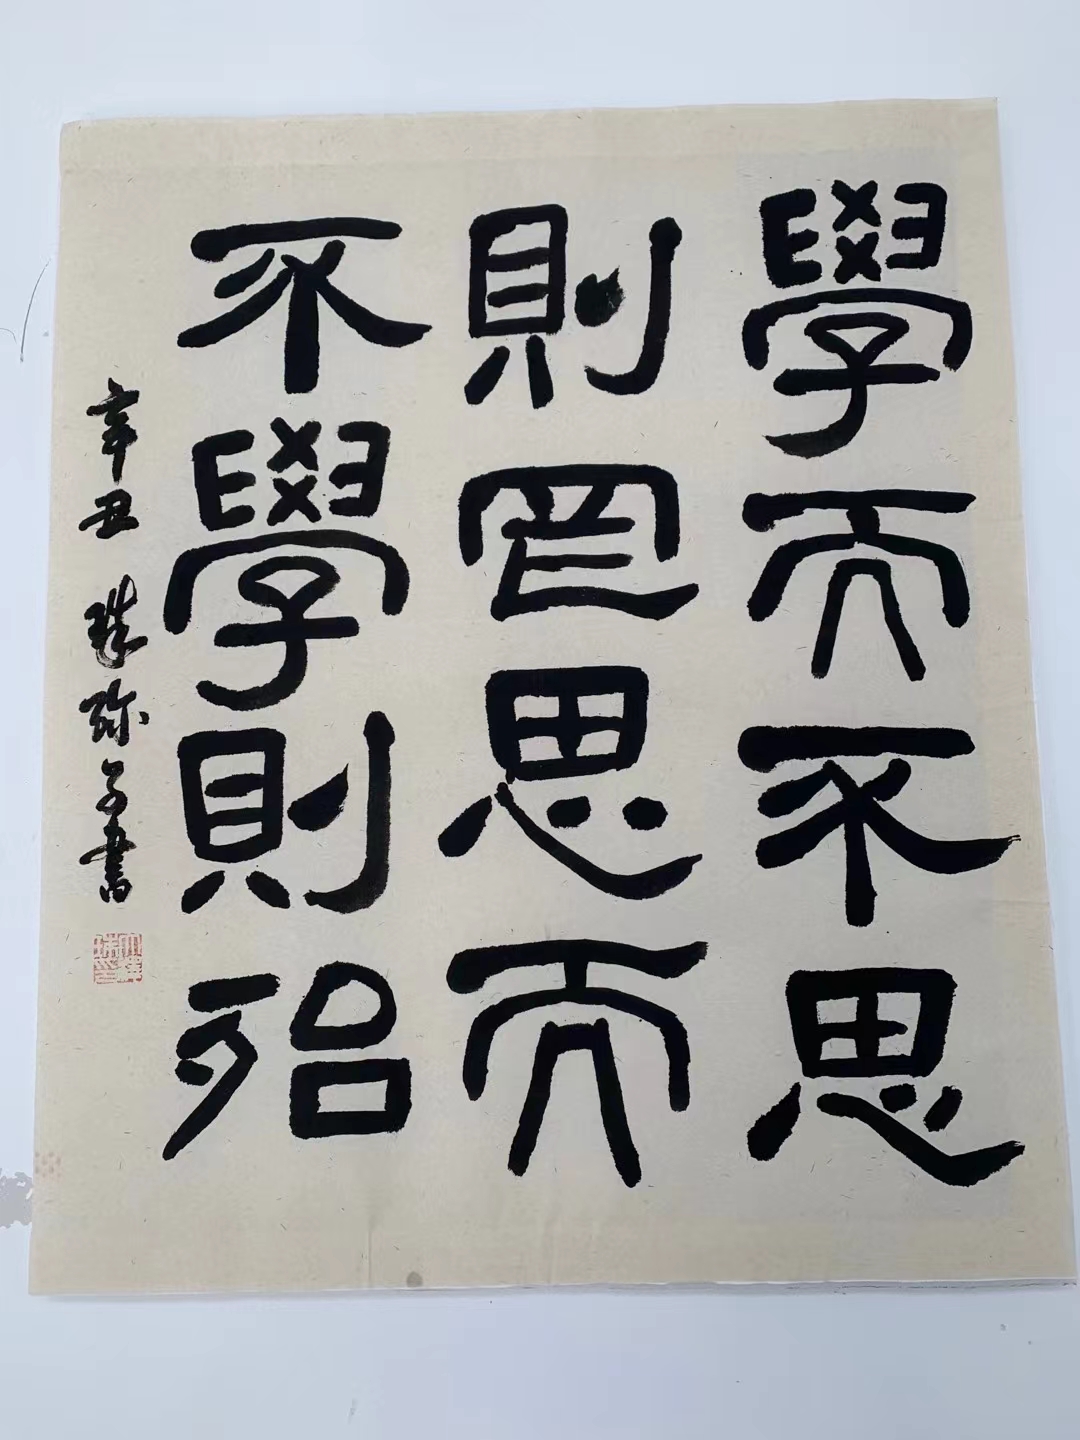 學而不思
則罔思而
不學則殆
辛丑 珠弥子書